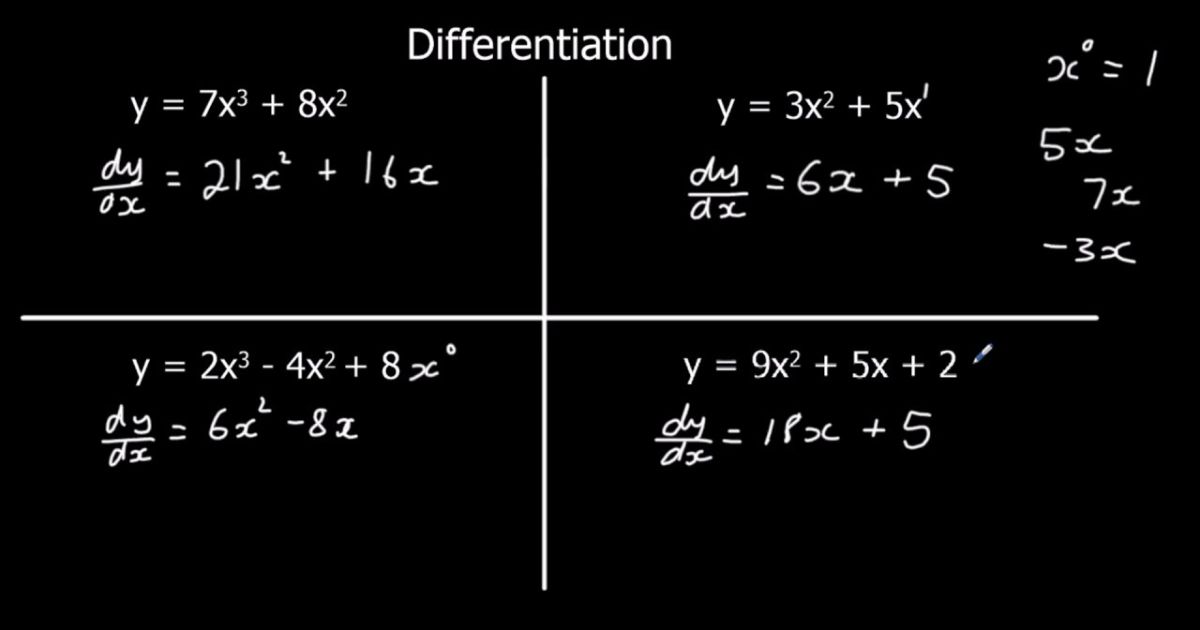 Differentiation
y = 7x³ + 8x²
dy/dx = 21x² + 16x
y = 3x² + 5x¹
dy/dx = 6x + 5
x⁰ = 1
5x
7x
-3x
y = 2x³ - 4x² + 8x⁰
dy/dx = 6x² - 8x
y = 9x² + 5x + 2
dy/dx = 18x + 5